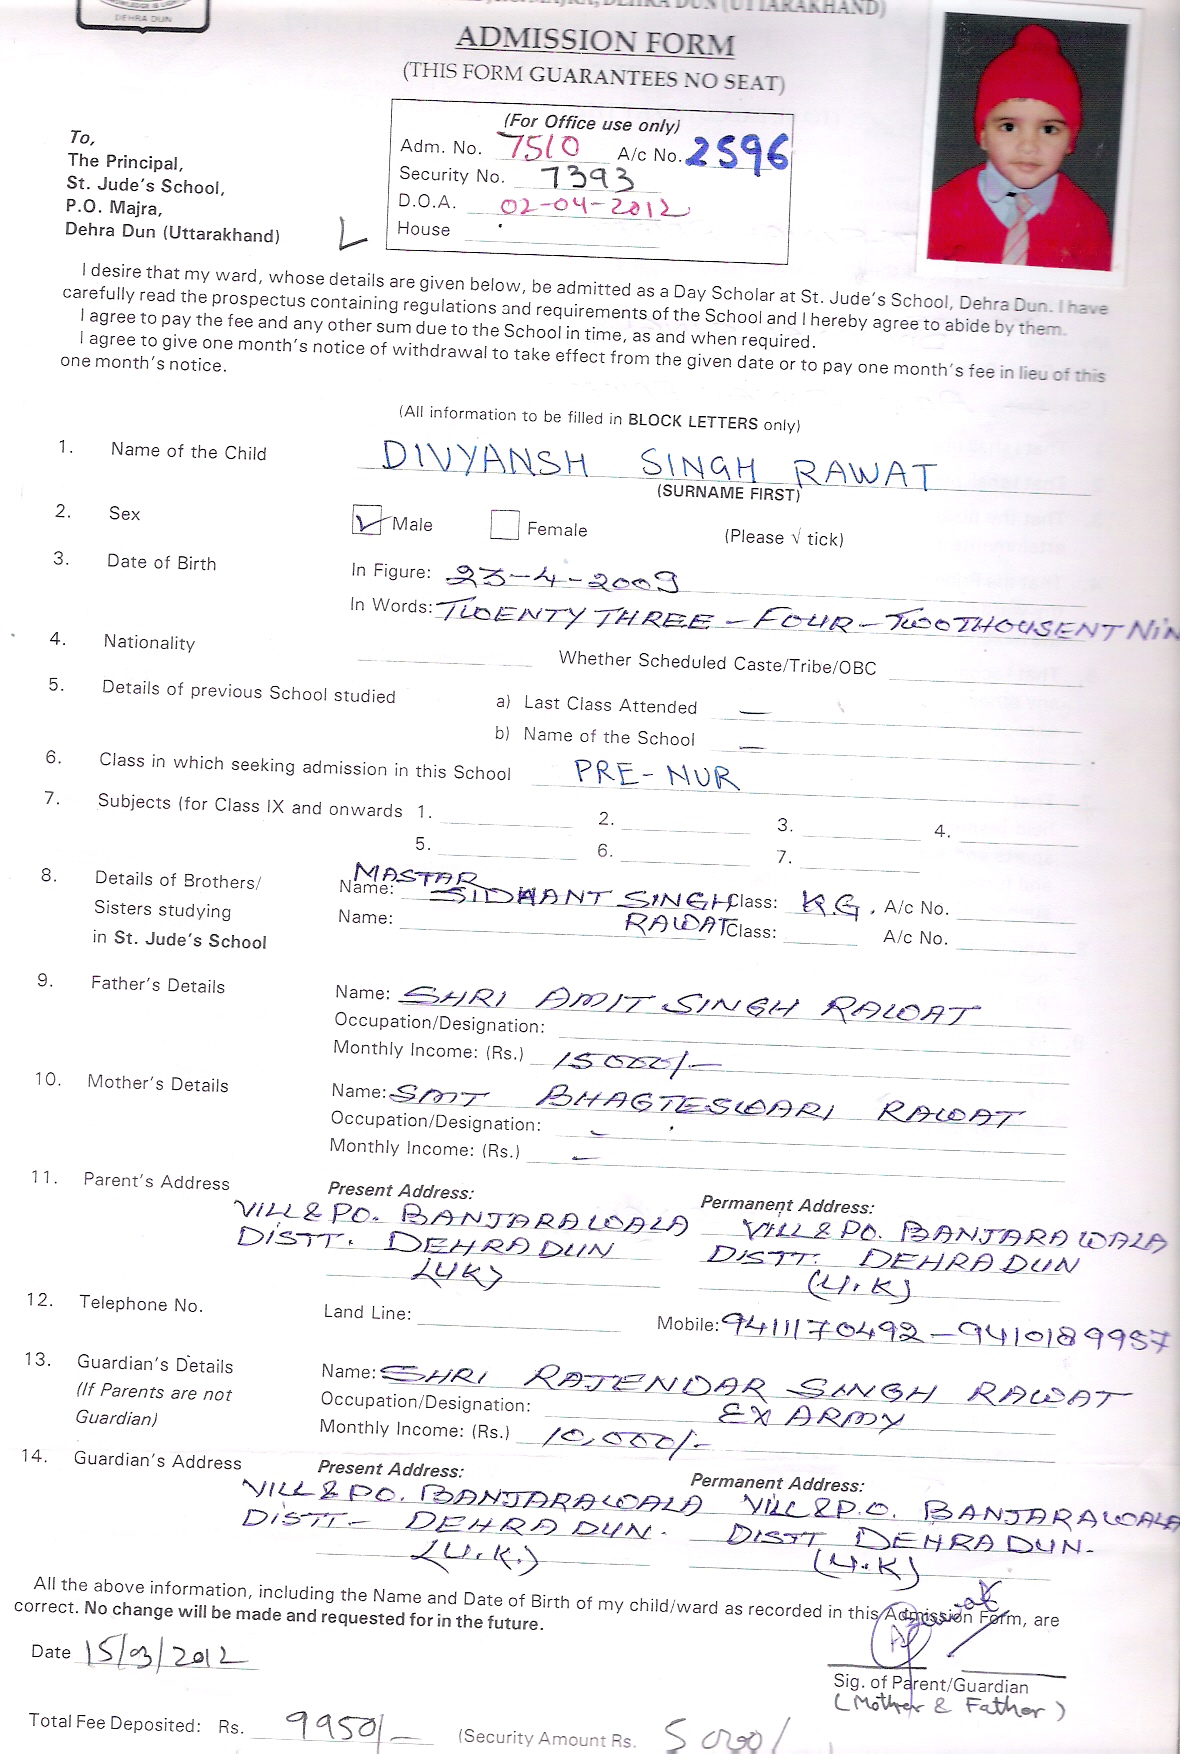 DEHRA DUN
MAJRA, DEHRA DUN (UTTARAKHAND)
ADMISSION FORM
(THIS FORM GUARANTEES NO SEAT)
(For Office use only)
Adm. No. 7510 A/c No. 2596
Security No. 7393
D.O.A. 02-04-2012
House
To,
The Principal,
St. Jude's School,
P.O. Majra,
Dehra Dun (Uttarakhand)
I desire that my ward, whose details are given below, be admitted as a Day Scholar at St. Jude's School, Dehra Dun. I have
carefully read the prospectus containing regulations and requirements of the School and I hereby agree to abide by them.
I agree to pay the fee and any other sum due to the School in time, as and when required.
I agree to give one month's notice of withdrawal to take effect from the given date or to pay one month's fee in lieu of this
one month's notice.
(All information to be filled in BLOCK LETTERS only)
1. Name of the Child DIVYANSH SINGH RAWAT
(SURNAME FIRST)
2. Sex Male Female (Please √ tick)
3. Date of Birth In Figure: 23-4-2009
In Words: TWOENTY THREE - FOUR - TWOOTHOUSENT NiN
4. Nationality Whether Scheduled Caste/Tribe/OBC
5. Details of previous School studied a) Last Class Attended —
b) Name of the School —
6. Class in which seeking admission in this School PRE-NUR
7. Subjects (for Class IX and onwards 1. 2. 3. 4.
5. 6. 7.
8. Details of Brothers/ Sisters studying in St. Jude's School
MASTAR
Name: SIDHANT SINGH Class: K.G. A/c No.
Name: RAWAT Class: A/c No.
9. Father's Details Name: SHRI AMIT SINGH RAWAT
Occupation/Designation:
Monthly Income: (Rs.) 15000/-
10. Mother's Details Name: SMT BHAGTESWARI RAWAT
Occupation/Designation: -
Monthly Income: (Rs.) -
11. Parent's Address Present Address: Permanent Address:
VILL & PO. BANJARAWALA VILL & PO. BANJARAWALA
DISTT. DEHRADUN DISTT. DEHRADUN
(UK) (U.K)
12. Telephone No. Land Line: Mobile: 9411170492-9410189957
13. Guardian's Details Name: SHRI RAJENDAR SINGH RAWAT
(If Parents are not Occupation/Designation: EX ARMY
Guardian) Monthly Income: (Rs.) 10,000/-
14. Guardian's Address Present Address: Permanent Address:
VILL & PO. BANJARAWALA VILL & P.O. BANJARAWALA
DISTT- DEHRADUN. DISTT DEHRADUN.
(U.K.) (U.K)
All the above information, including the Name and Date of Birth of my child/ward as recorded in this Admission Form, are
correct. No change will be made and requested for in the future.
Date 15/03/2012
Sig. of Parent/Guardian
(Mother & Father)
Total Fee Deposited: Rs. 9950/- (Security Amount Rs. 5000/